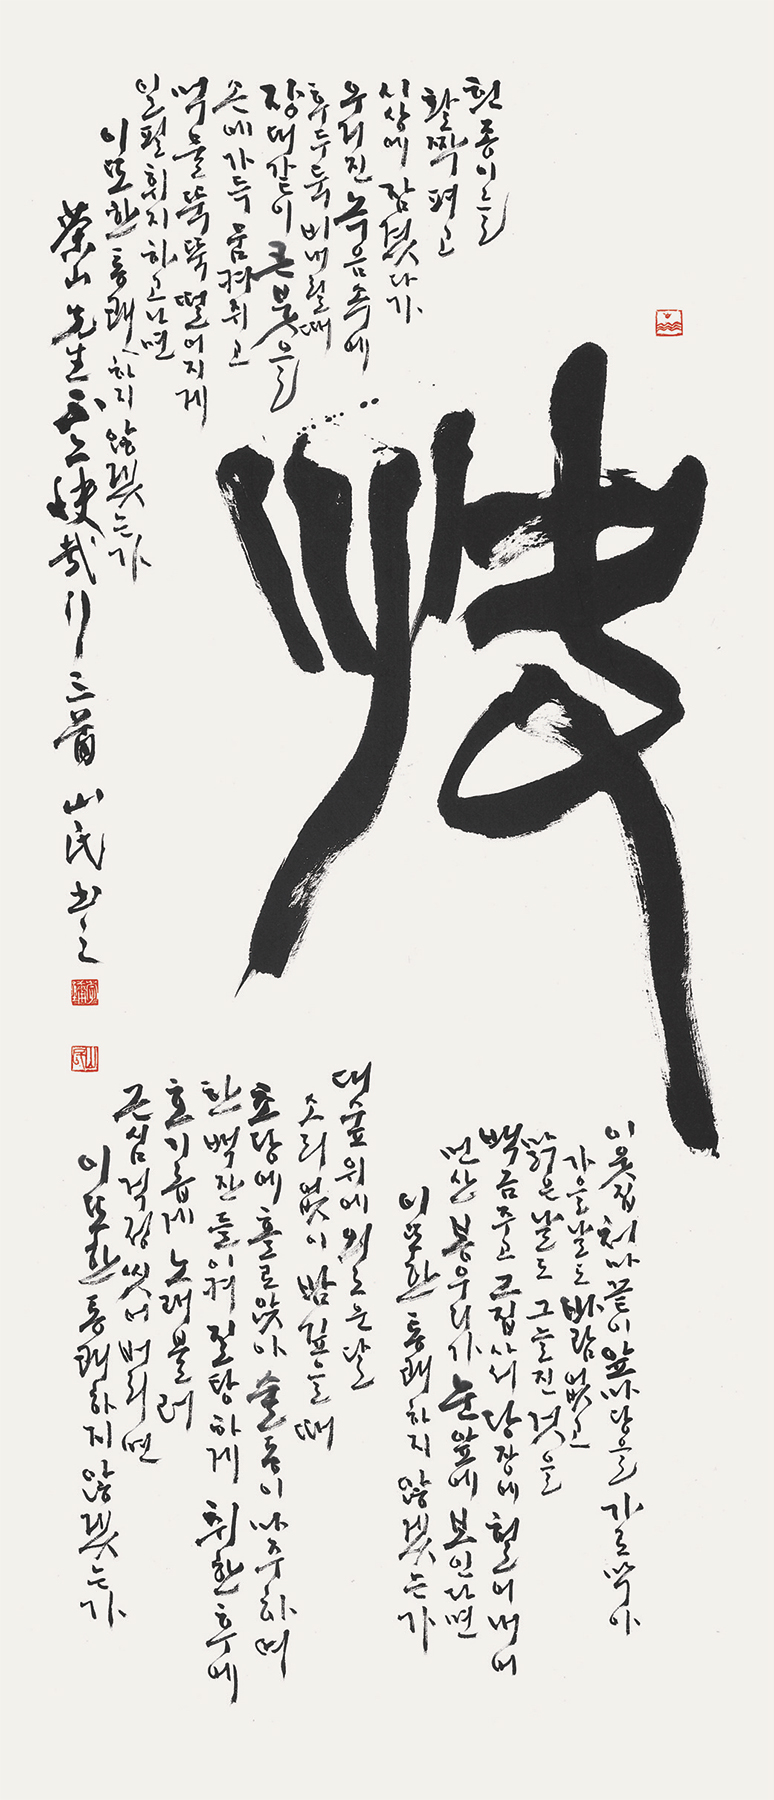 快
흰 종이를
활짝 펴고
시상에 잠겼다가
우거진 녹음 속에
후두둑 비 내릴 때
장대같이 큰 붓을
손에 가득 움켜쥐고
먹물 뚝뚝 떨어지게
일필휘지하고 나면
이 또한 통쾌하지 않겠는가
이웃집 처마 끝이 앞마당을 가로막아
가을날도 바람 없고
맑은 날도 그늘진 것을
백금 주고 그 집 사서 당장에 헐어내어
먼 산 봉우리가 눈앞에 보인다면
이 또한 통쾌하지 않겠는가
대숲 위에 외로운 달
소리 없이 밤 깊을 때
초당에 홀로 앉아 술동이 마주하며
한 백 잔 들이켜 질탕하게 취한 후에
호기롭게 노래 불러
근심 걱정 씻어 버리면
이 또한 통쾌하지 않겠는가
茶山先生 不亦快哉行 三首 山民 書
山民